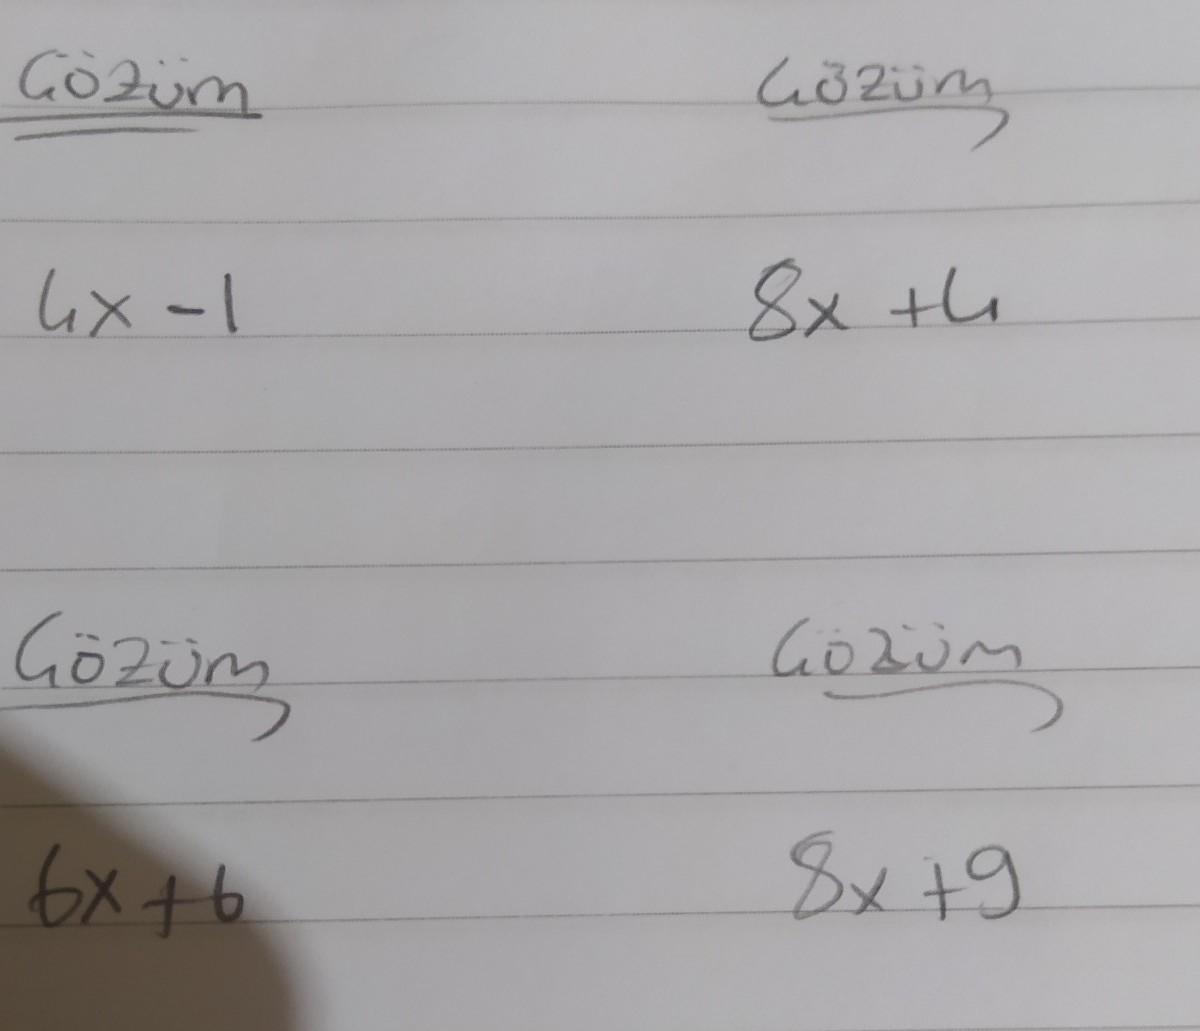 Çözüm
Çözüm
4x - 1
8x + 4
Çözüm
Çözüm
6x + 6
8x + 9